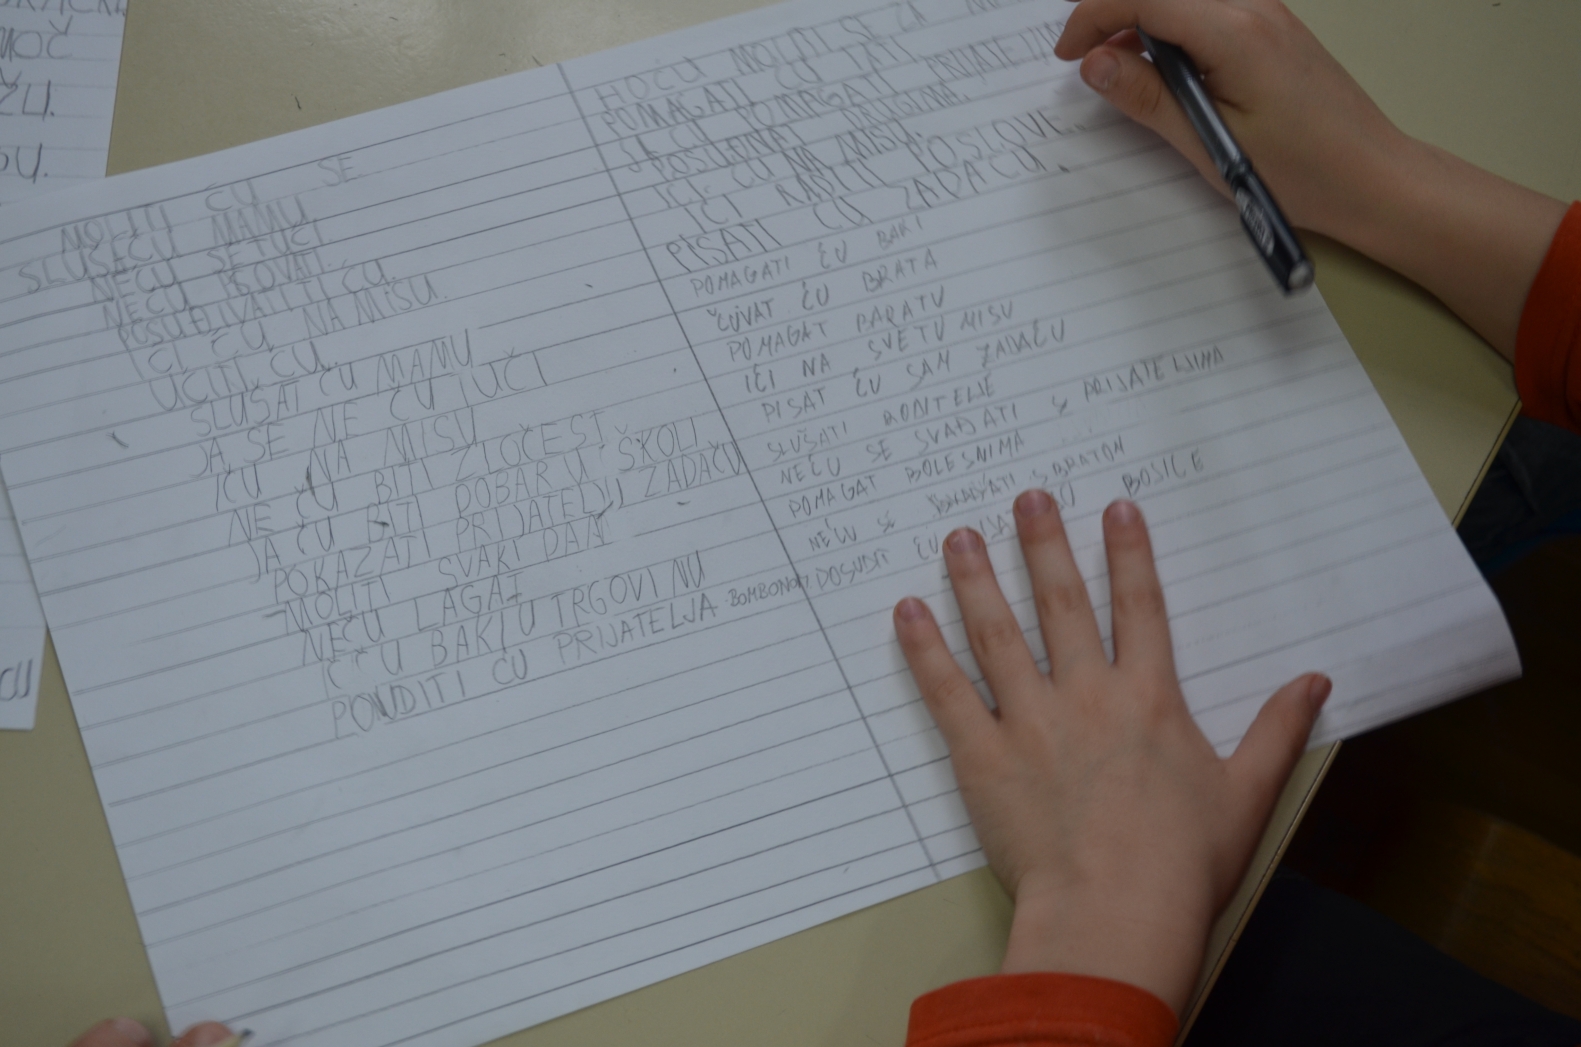 MOČ
ŽU.
MOLITI ĆU SE
SLUŠEĆU MAMU.
NEĆU SE TUĆI.
NEĆU PSOVATI.
POSUĐIVATITI ĆU.
IĆI ĆU NA MISU.
UČITI ĆU.
SLUŠAT ĆU MAMU
JA SE NE ĆU TUČI
IĆU NA MISU
NE ČU BITI ZLOČEST
JA ĆU BITI DOBAR U ŠKOLI
POKAZATI PRIJATELJU ZADAĆU
MOLITI SVAKI DAN
NEĆU LAGAT
U BAKI U TRGOVINU
PONUDITI ĆU PRIJATELJA BOMBONOM
HOĆU MOLITI SE ZA
POMAGATI ĆU TATI
JA ĆU POMAGATI
DRUGIMA.
IĆI ĆU NA MISU.
IĆI RADITI POSLOVE.
PISATI ĆU ZADAĆU.
POMAGATI ĆU BAKI
ČUVAT ĆU BRATA
POMAGAT BARATU
IĆI NA SVETU MISU
PISAT ĆU SAM ZADAĆU
SLUŠATI RODITELJE
NEĆU SE SVAĐATI S PRIJATELJIMA
POMAGAT BOLESNIMA
NEĆU SE S BRATOM
POSUDIT ĆU BOJICE